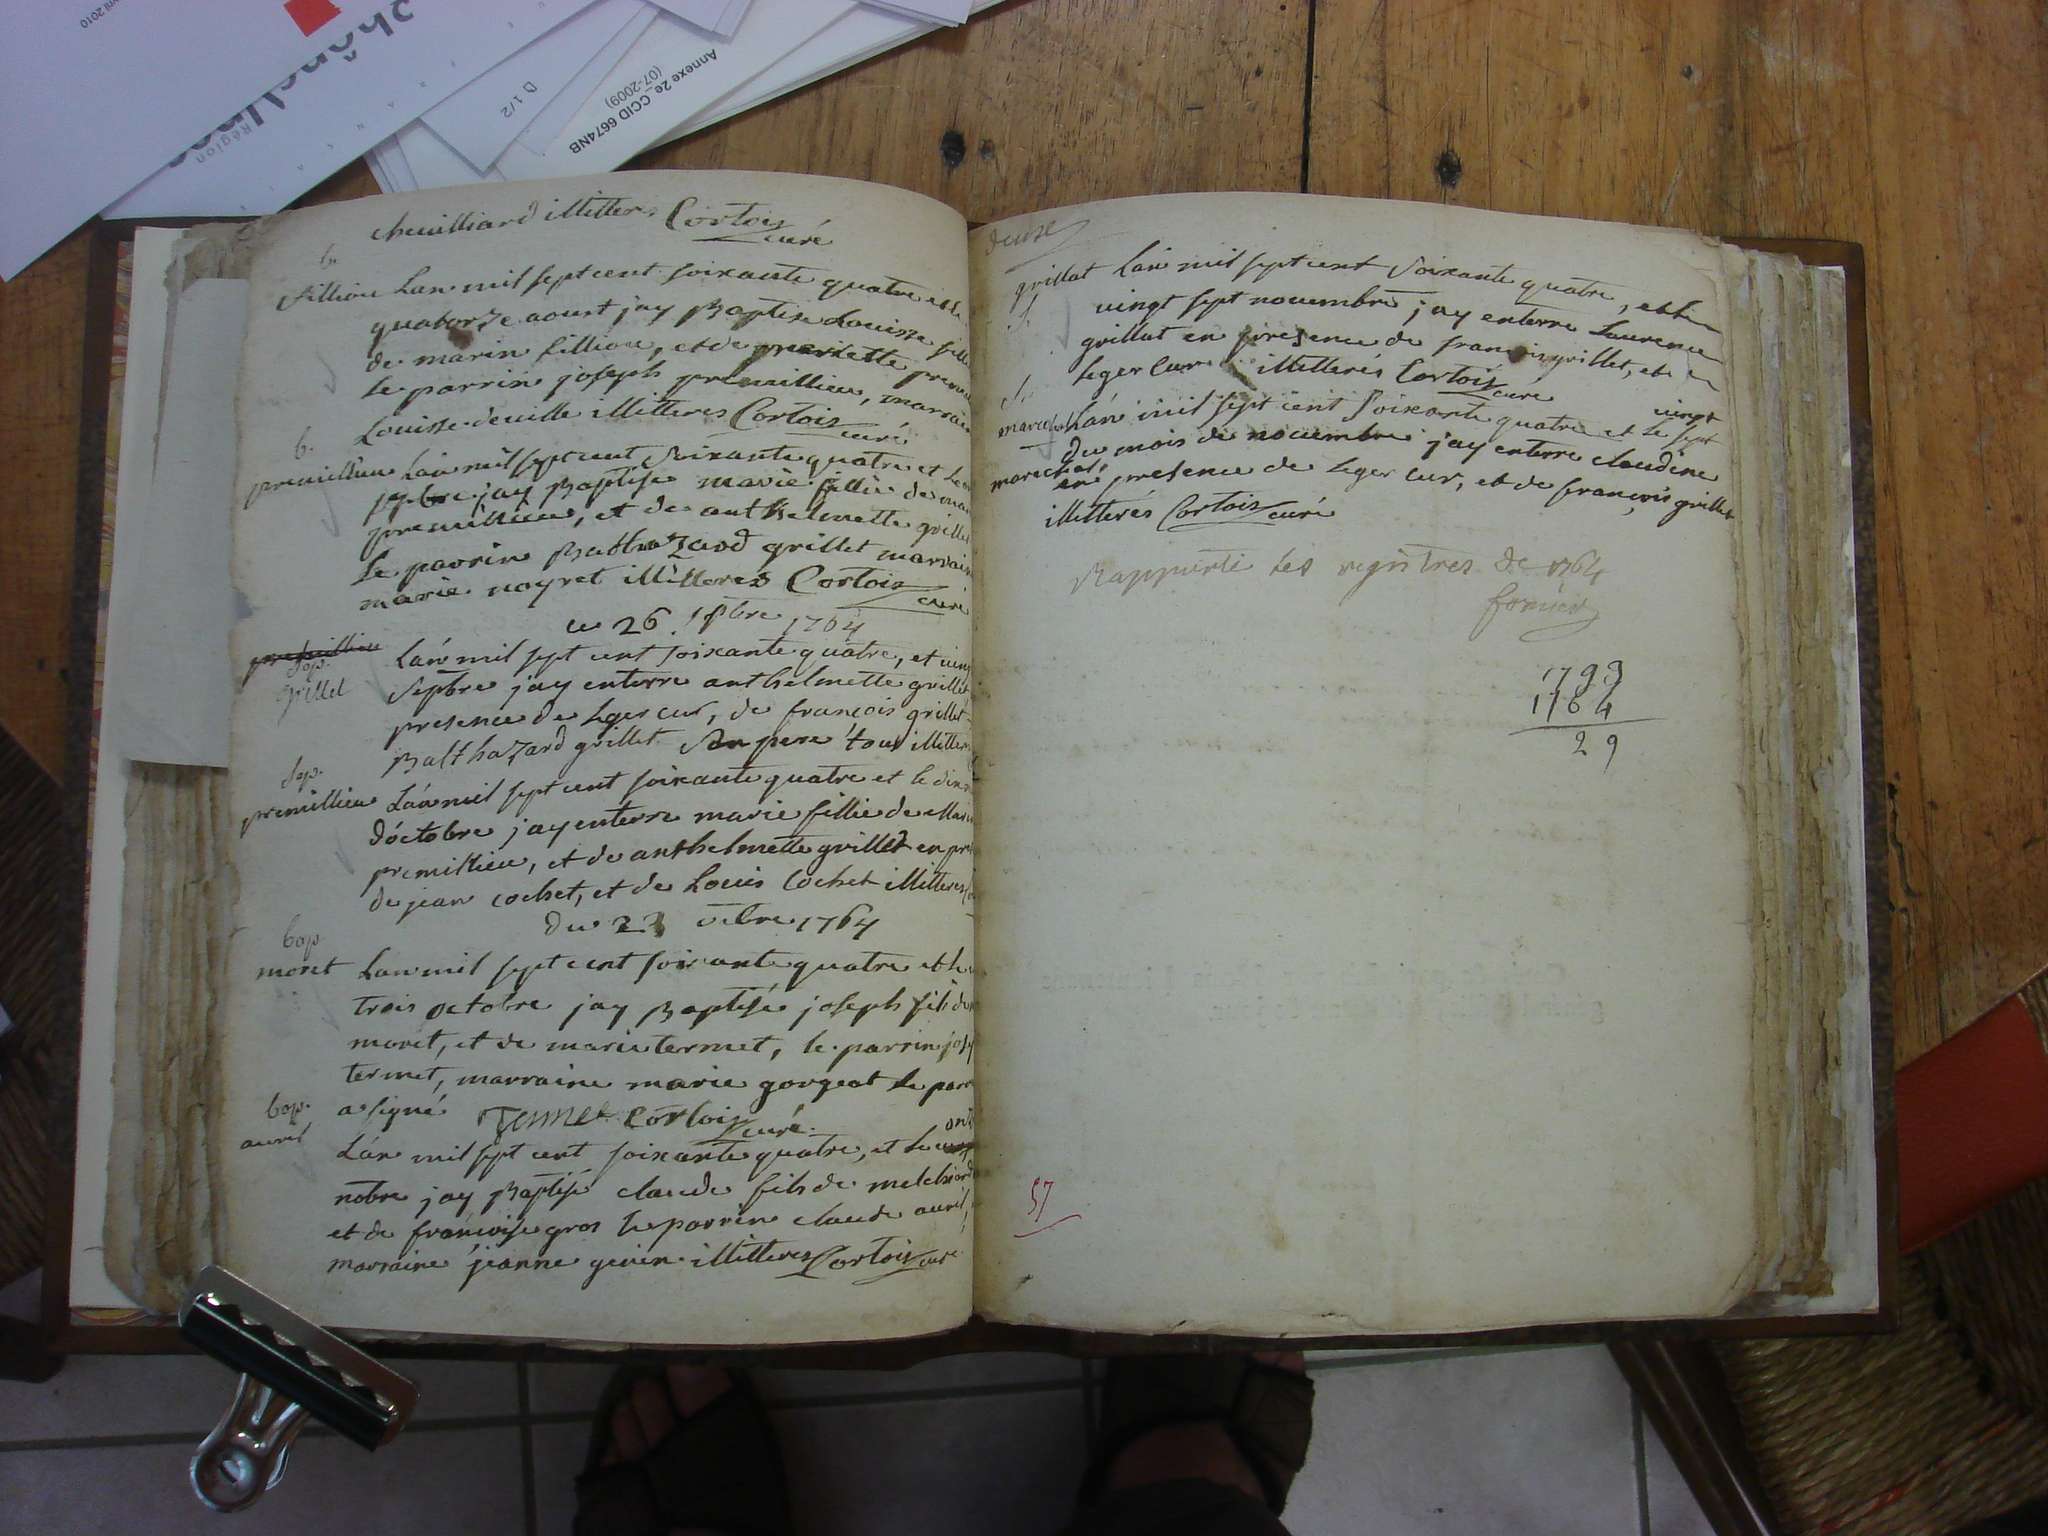 avril 2010
Rhône
Région
D 1/2
Annexe 2e_CCID 6674NB
(07-2009)
chevilliard illitteres Cortois
curé
b.
fillion Lan mil sept cent soixante quatre et le
quatorze aoust jay Baptise Louisse fille
de marin fillion, et de pernette premi
le parrin joseph premillieu, marrain
Louisse deville illitteres Cortois
curé
b.
premillieu Lan mil sept cent soixante quatre et le
7bre jay Baptise marie fillie de mar
premillieu, et de anthelmette grillet
Le parrin Balthazard grillet marrain
marie noyret illitteres Cortois
curé
ce 26 7bre 1764
premillieu
sep.
grillet
Lan mil sept cent soixante quatre, et ving
septbre jay enterre anthelmette grillet
presence de Leger cur, de françois grillet
Balthazard grillet son pere tous illitter
sep.
premillieu Lan mil sept cent soixante quatre et le dix
d'octobre jay enterre marie fillie de Marin
premillieu, et de anthelmette grillet en pre
de jean cochet, et de Louis Cochet illitteres
du 23 octbre 1764
bap.
moret Lan mil sept cent soixante quatre et le
trois octobre jay Baptisé joseph fils de
moret, et de marie termet, le parrin jose
termet, marraine marie gorgeat le parr
a signé Termet Cortois
curé.
bap.
avril
onz
Lan mil sept cent soixante quatre, et le
nobre jay Baptisé claude fils de melchiord
et de françoise gros le parrin claude avril,
marraine jeanne given illitteres Cortois cur
douze
grillat Lan mil sept cent soixante quatre, et le
s.
vingt sept novembre jay enterre Laurence
grillat en presence de françois grillet, et de
Leger Cur illitterés Cortois
curé
s.
vingt
marechal Lan mil sept cent soixante quatre et le sept
du mois de novembre jay enterre claudine
marechal
en presence de Leger cur, et de françois grillet
illitterés Cortois curé
Rapporté les registres de 1764
1793
1764
29
57